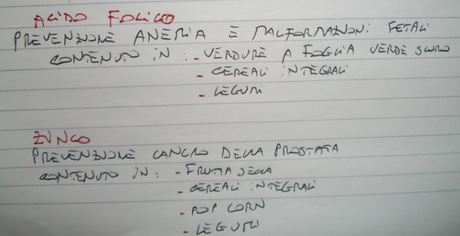 ACIDO FOLICO
PREVENZIONE ANEMIA E MALFORMAZIONI FETALI
CONTENUTO IN: - VERDURE A FOGLIA VERDE SCURO
- CEREALI INTEGRALI
- LEGUMI
ZINCO
PREVENZIONE CANCRO DELLA PROSTATA
CONTENUTO IN: - FRUTTA SECCA
- CEREALI INTEGRALI
- POP CORN
- LEGUMI